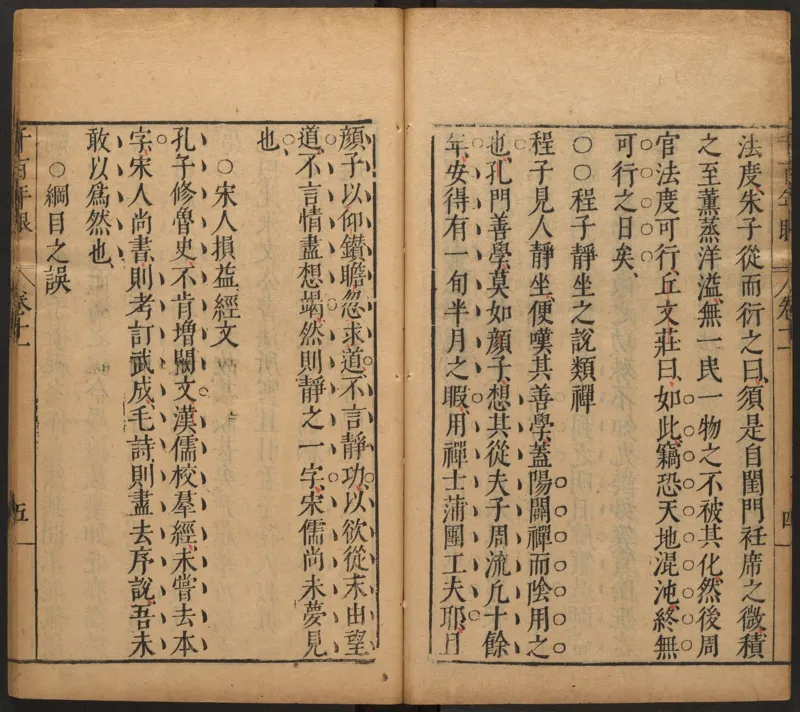 法度朱子從而衍之曰須是自閨門衽席之微積
之至薰蒸洋溢無一民一物之不被其化然後周
官法度可行丘文莊曰如此竊恐天地混沌終無
可行之日矣
○○程子靜坐之說類禪
程子見人靜坐便嘆其善學蓋陽闢禪而陰用之
也孔門善學莫如顏子想其從夫子周流凢十餘
年安得有一旬半月之暇用禪士蒲團工夫耶且
顏子以仰鑽瞻忽求道不言靜功以欲從末由望
道不言情盡想竭然則靜之一字宋儒尚未夢見
也
○宋人損益經文
孔子修魯史不肯增闕文漢儒校羣經未嘗去本
字宋人尚書則考訂武成毛詩則盡去序說吾未
敢以爲然也
○綱目之誤
千百年眼
卷十一
五